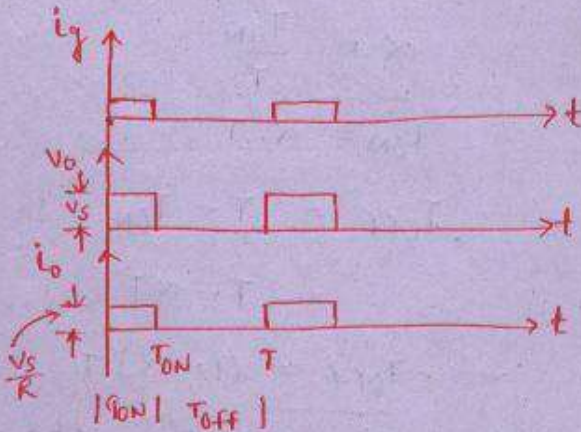 ig
t
Vo
Vs
t
io
Vs/R
t
TON T
|TON| Toff |